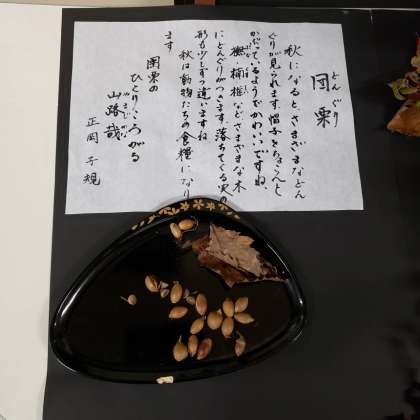 団栗
どんぐり
秋になるとさまざまなどん
ぐりが見られます帽子をちょこんと
かぶっているようでかわいいですね
櫟・楠・椎などさまざまな木
にどんぐりがつきます落ちてくる実の
形も少しずつ違いますね
秋は動物たちの食糧になり
ます
団栗の
ひとりころがる
山路哉
やまじかな
正岡子規